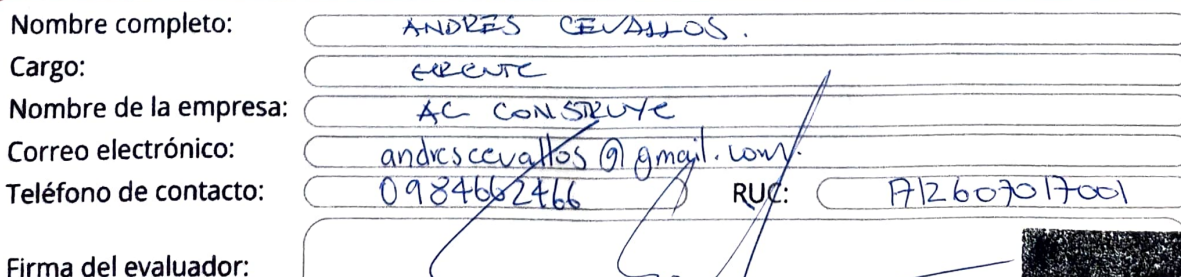 Nombre completo: ANDRES CEVALLOS.
Cargo: GERENTE
Nombre de la empresa: AC CONSTRUYE
Correo electrónico: andrescevallos@gmail.com.
Teléfono de contacto: 0984662466 RUC: 1712607017001
Firma del evaluador: